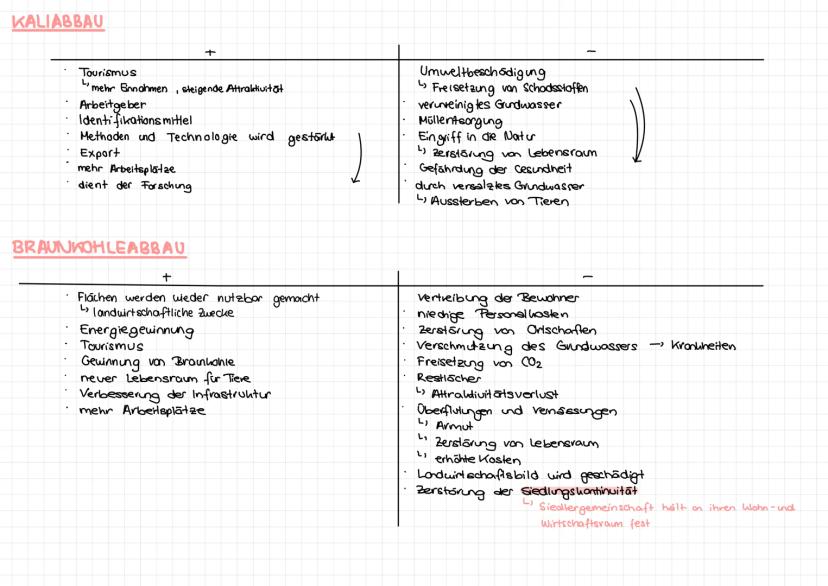 KALIABBAU
+
· Tourismus
↳ mehr Einnahmen, steigende Attraktivität
· Arbeitgeber
· Identifikationsmittel
· Methoden und Technologie wird gestärkt
· Export
· mehr Arbeitsplätze
· dient der Forschung
−
Umweltbeschädigung
↳ Freisetzung von Schadsstoffen
· verunreinigtes Grundwasser
· Müllentsorgung
· Eingriff in die Natur
↳ Zerstörung von Lebensraum
· Gefährdung der Gesundheit
· durch versalztes Grundwasser
↳ Aussterben von Tieren
BRAUNKOHLEABBAU
+
· Flächen werden wieder nutzbar gemacht
↳ landwirtschaftliche Zwecke
· Energiegewinnung
· Tourismus
· Gewinnung von Braunkohle
· neuer Lebensraum für Tiere
· Verbesserung der Infrastruktur
· mehr Arbeitsplätze
−
Vertreibung der Bewohner
· niedrige Personalkosten
· Zerstörung von Ortschaften
· Verschmutzung des Grundwassers → Krankheiten
· Freisetzung von CO₂
· Restlöcher
↳ Attraktivitätsverlust
· Überflutungen und Vernässungen
↳ Armut
↳ Zerstörung von Lebensraum
↳ erhöhte Kosten
· Landwirtschaftsbild wird geschädigt
· Zerstörung der Siedlungskontinuität
↳ Siedlergemeinschaft hält an ihren Wohn- und
Wirtschaftsraum fest